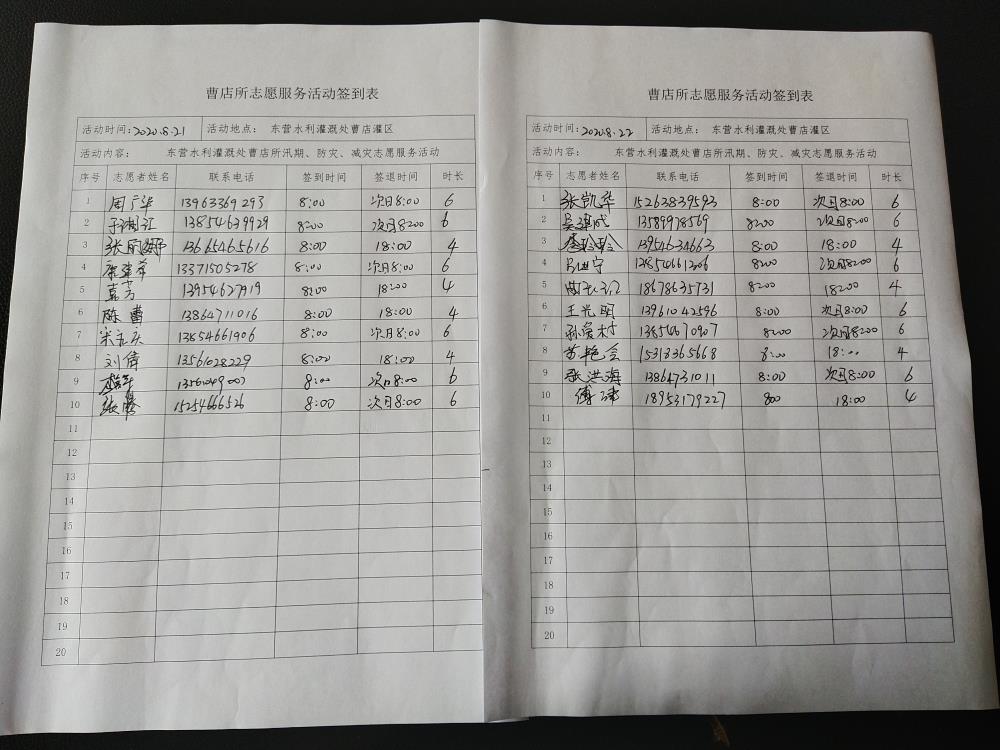 曹店所志愿服务活动签到表
活动时间: 2020.8.21 活动地点: 东营水利灌溉处曹店灌区
活动内容: 东营水利灌溉处曹店所汛期、防灾、减灾志愿服务活动
序号 志愿者姓名 联系电话 签到时间 签退时间 时长
1 周广华 13963369293 8:00 次日8:00 6
2 于湘江 13854639929 8:00 次日8:00 6
3 张丽娜 13665465616 8:00 18:00 4
4 13371505278 8:00 次日8:00 6
5 袁芳 13954627919 8:00 18:00 4
6 陈曹 13864711016 8:00 18:00 4
7 13854661906 8:00 次日8:00 6
8 刘倩 13561028229 8:00 18:00 4
9 8:00 次日8:00 6
10 15254666526 8:00 次日8:00 6
11
12
13
14
15
16
17
18
19
20
曹店所志愿服务活动签到表
活动时间: 2020.8.22 活动地点: 东营水利灌溉处曹店灌区
活动内容: 东营水利灌溉处曹店所汛期、防灾、减灾志愿服务活动
序号 志愿者姓名 联系电话 签到时间 签退时间 时长
1 张凯华 15263839593 8:00 次日8:00 6
2 13589978569 8:00 次日8:00 6
3 13954634663 8:00 18:00 4
4 8:00 次日8:00 6
5 18678635731 8:00 18:00 4
6 王光明 13961042596 8:00 次日8:00 6
7 孙爱村 13854670907 8:00 次日8:00 6
8 苏艳会 15318365668 8:00 18:00 4
9 张洪海 13864731011 8:00 次日8:00 6
10 傅沛 18953179227 800 18:00 4
11
12
13
14
15
16
17
18
19
20